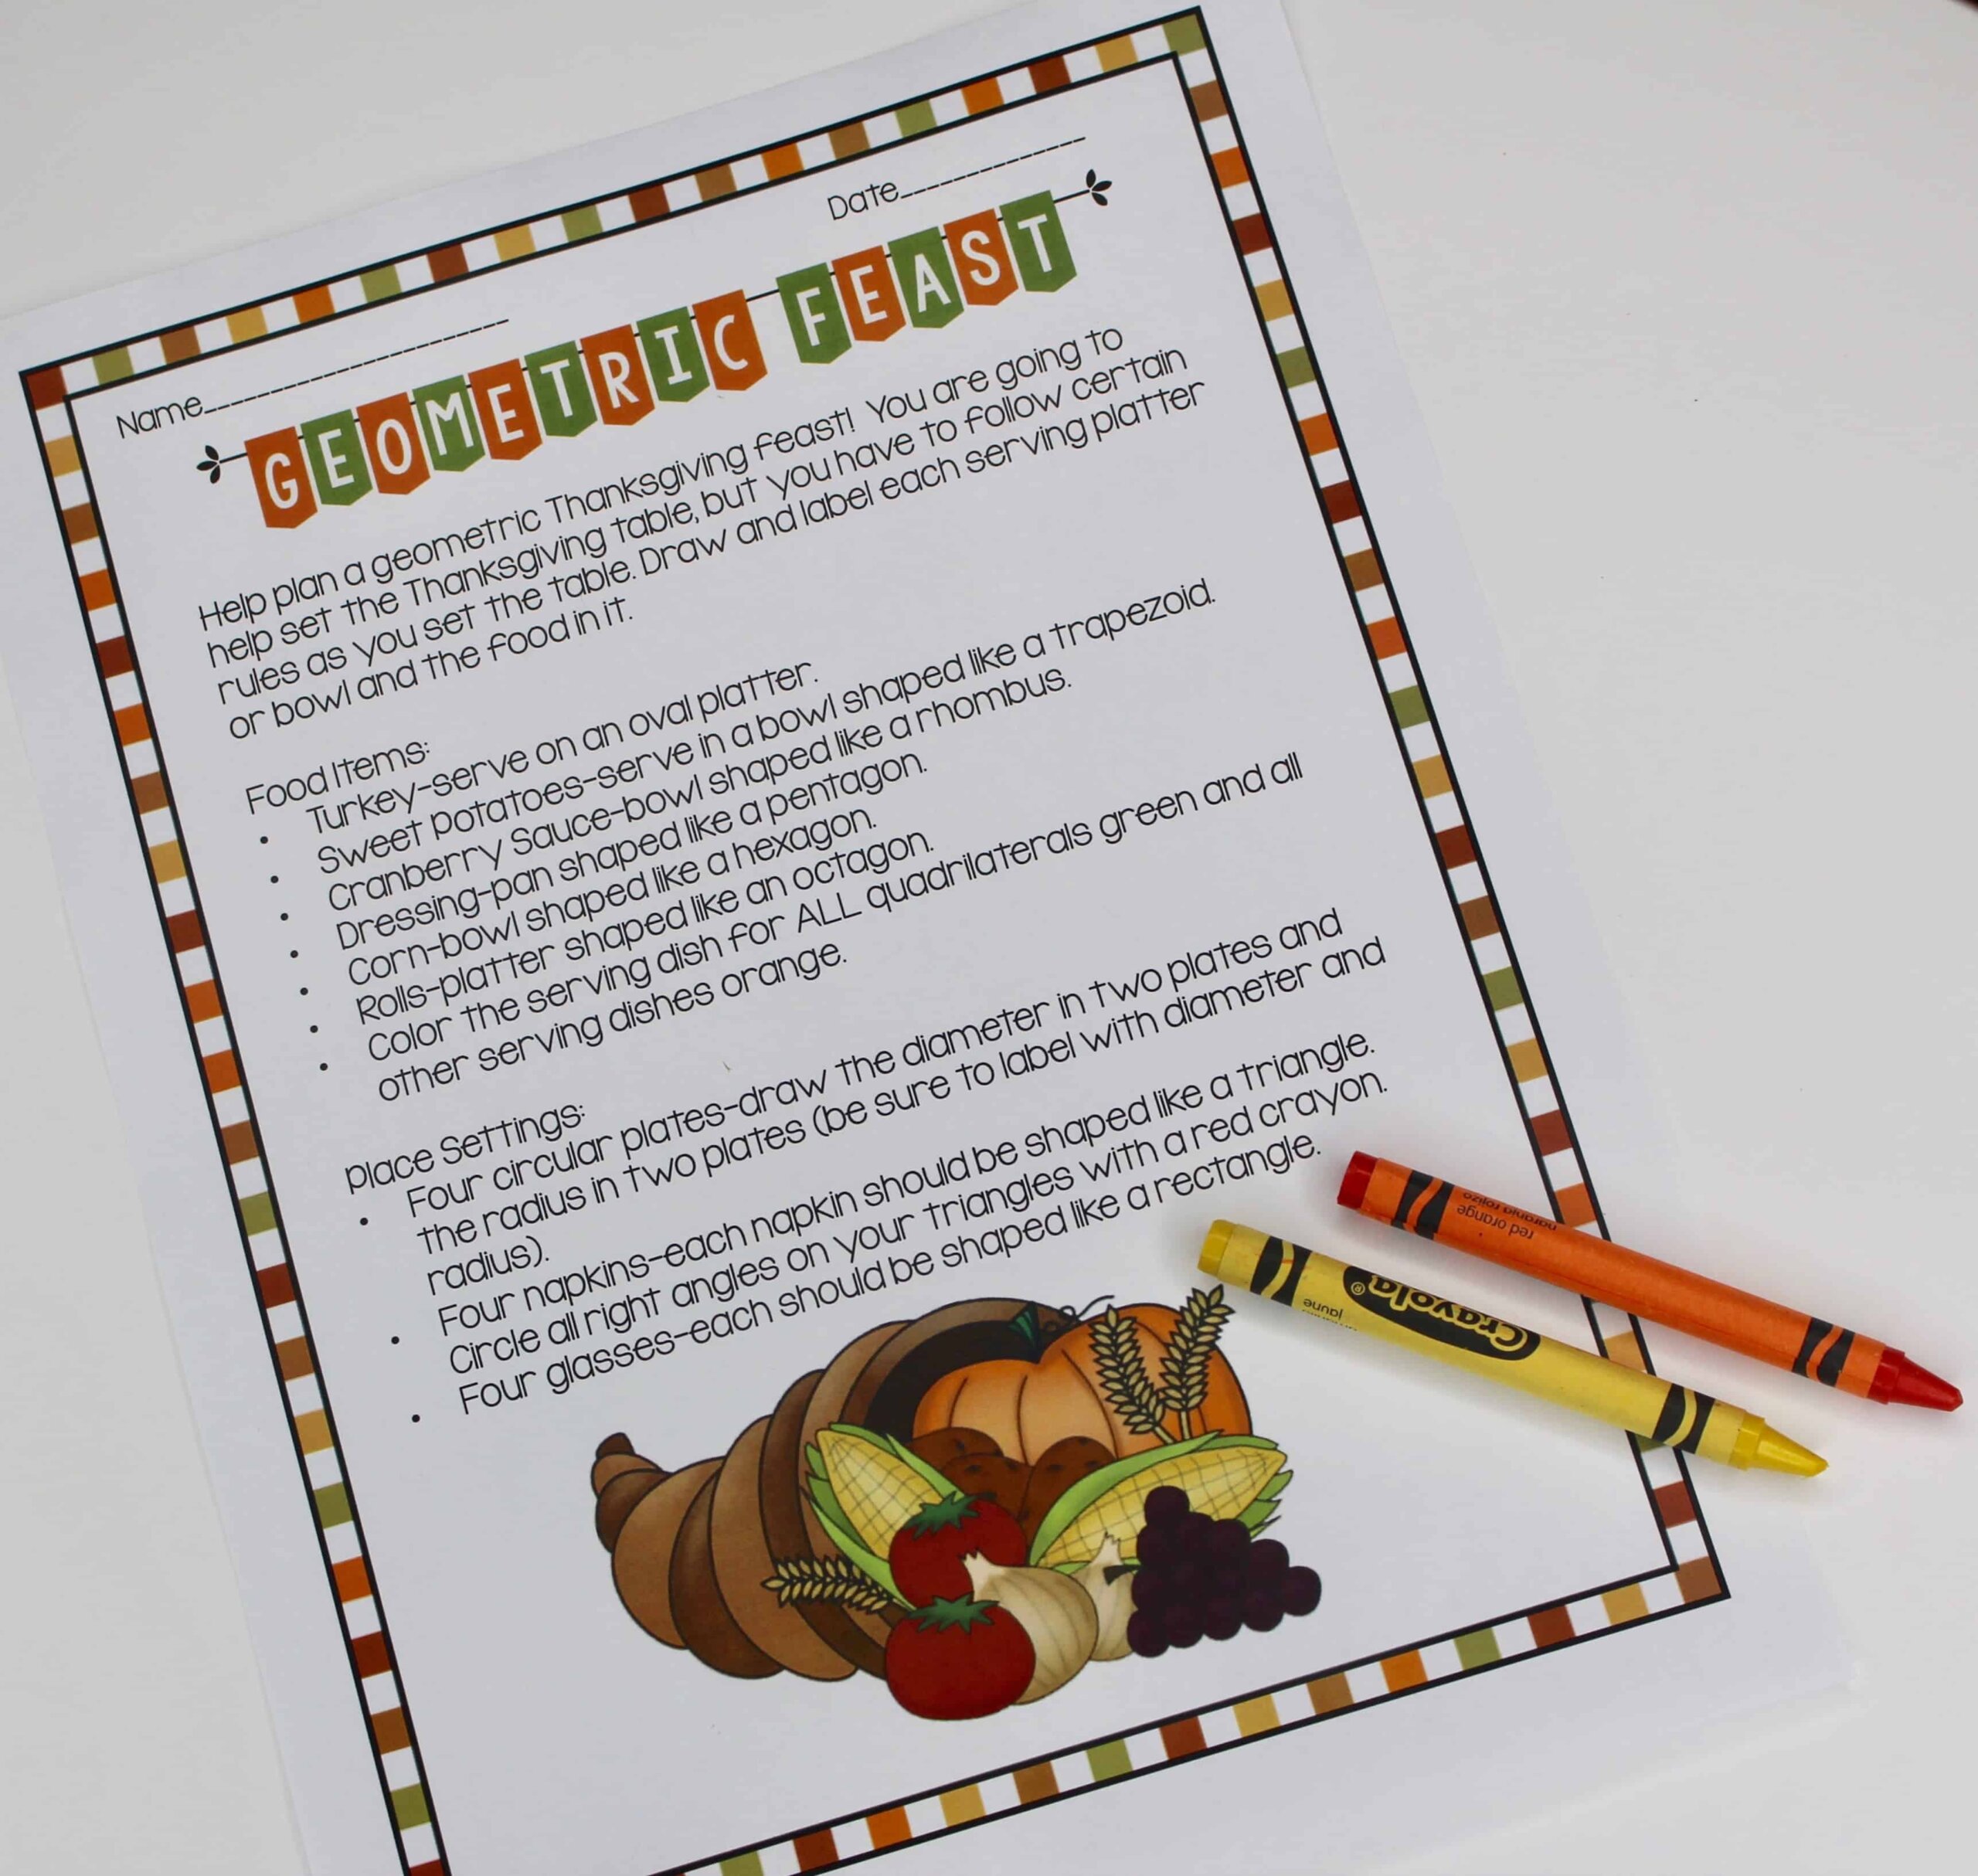 Name____________________ Date____________
GEOMETRIC FEAST
Help plan a geometric Thanksgiving feast! You are going to
help set the Thanksgiving table, but you have to follow certain
rules as you set the table. Draw and label each serving platter
or bowl and the food in it.
Food Items:
• Turkey-serve on an oval platter.
• Sweet potatoes-serve in a bowl shaped like a trapezoid.
• Cranberry Sauce-bowl shaped like a rhombus.
• Dressing-pan shaped like a pentagon.
• Corn-bowl shaped like a hexagon.
• Rolls-platter shaped like an octagon.
• Color the serving dish for ALL quadrilaterals green and all
other serving dishes orange.
Place Settings:
• Four circular plates-draw the diameter in two plates and
the radius in two plates (be sure to label with diameter and
radius).
• Four napkins-each napkin should be shaped like a triangle.
Circle all right angles on your triangles with a red crayon.
• Four glasses-each should be shaped like a rectangle.
red orange
naranja rojizo
Crayola®
jaune